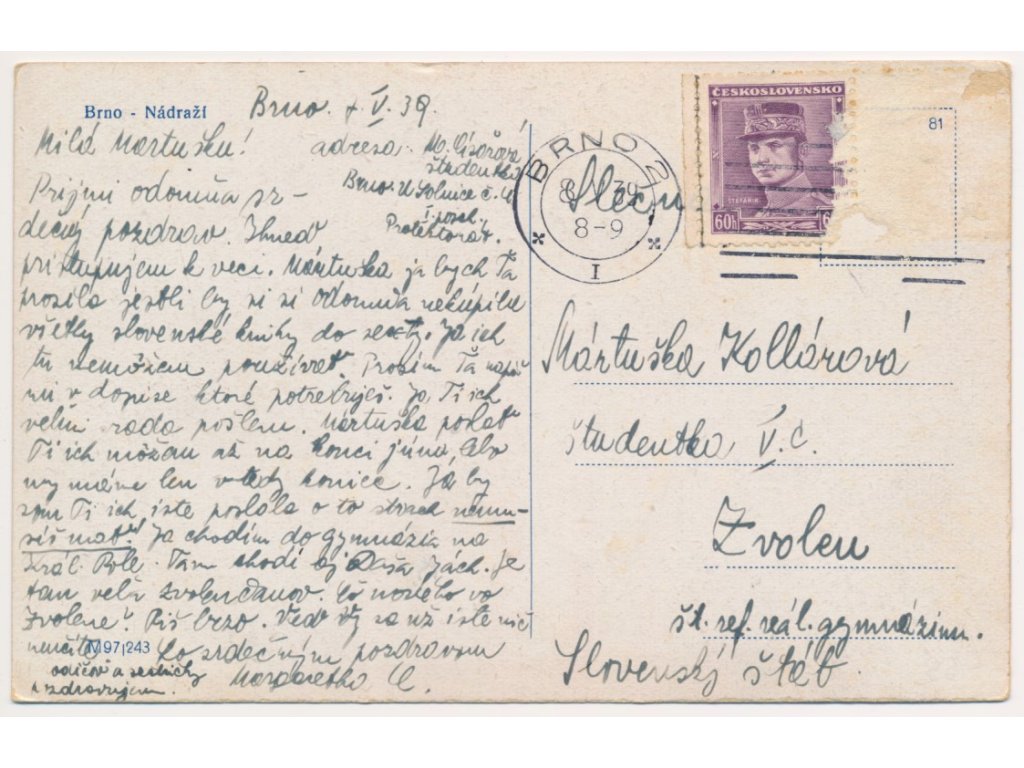 Brno - Nádraží
Brno. 7. V. 39.
Milá Martuška!
adresa
študentka
Brno. U Solnice č. 4
I. posch.
Protektorát.
Prijmi odomňa sr-
dečný pozdrav. Ihneď
pristupujem k veci. Mártuška ja bych Ťa
prosila jestli by si si odomňa nekúpila
všetky slovenské knihy do sexty. Ja ich
tu nemôžem používať. Prosím Ťa napíš
mi v dopise ktoré potrebuješ. Ja Ti ich
veľmi rada pošlem. Mártuška poslať
Ti ich môžem až na konci júna, lebo
my máme len vtedy konice. Ja by
som Ti ich iste poslala o to strach nemu-
síš mať! Ja chodím do gymnázia na
Král. Pole. Tam chodí aj Daša Zách. Je
tam veľa Zvolenčanov. Čo nového vo
Zvolene? Píš brzo. Veď Vy sa už iste nič
neučíte. So srdečným pozdravom
Margaretka C.
rodičov a sestričky
pozdravujem.
M 97/243
BRNO 2
8. V. 39
8-9
I
ČESKOSLOVENSKO
ŠTEFÁNIK
60h
81
Slečna
Mártuška Kollárová
študentka V. C
Zvolen
št. ref. reál. gymnázium.
Slovenský štát